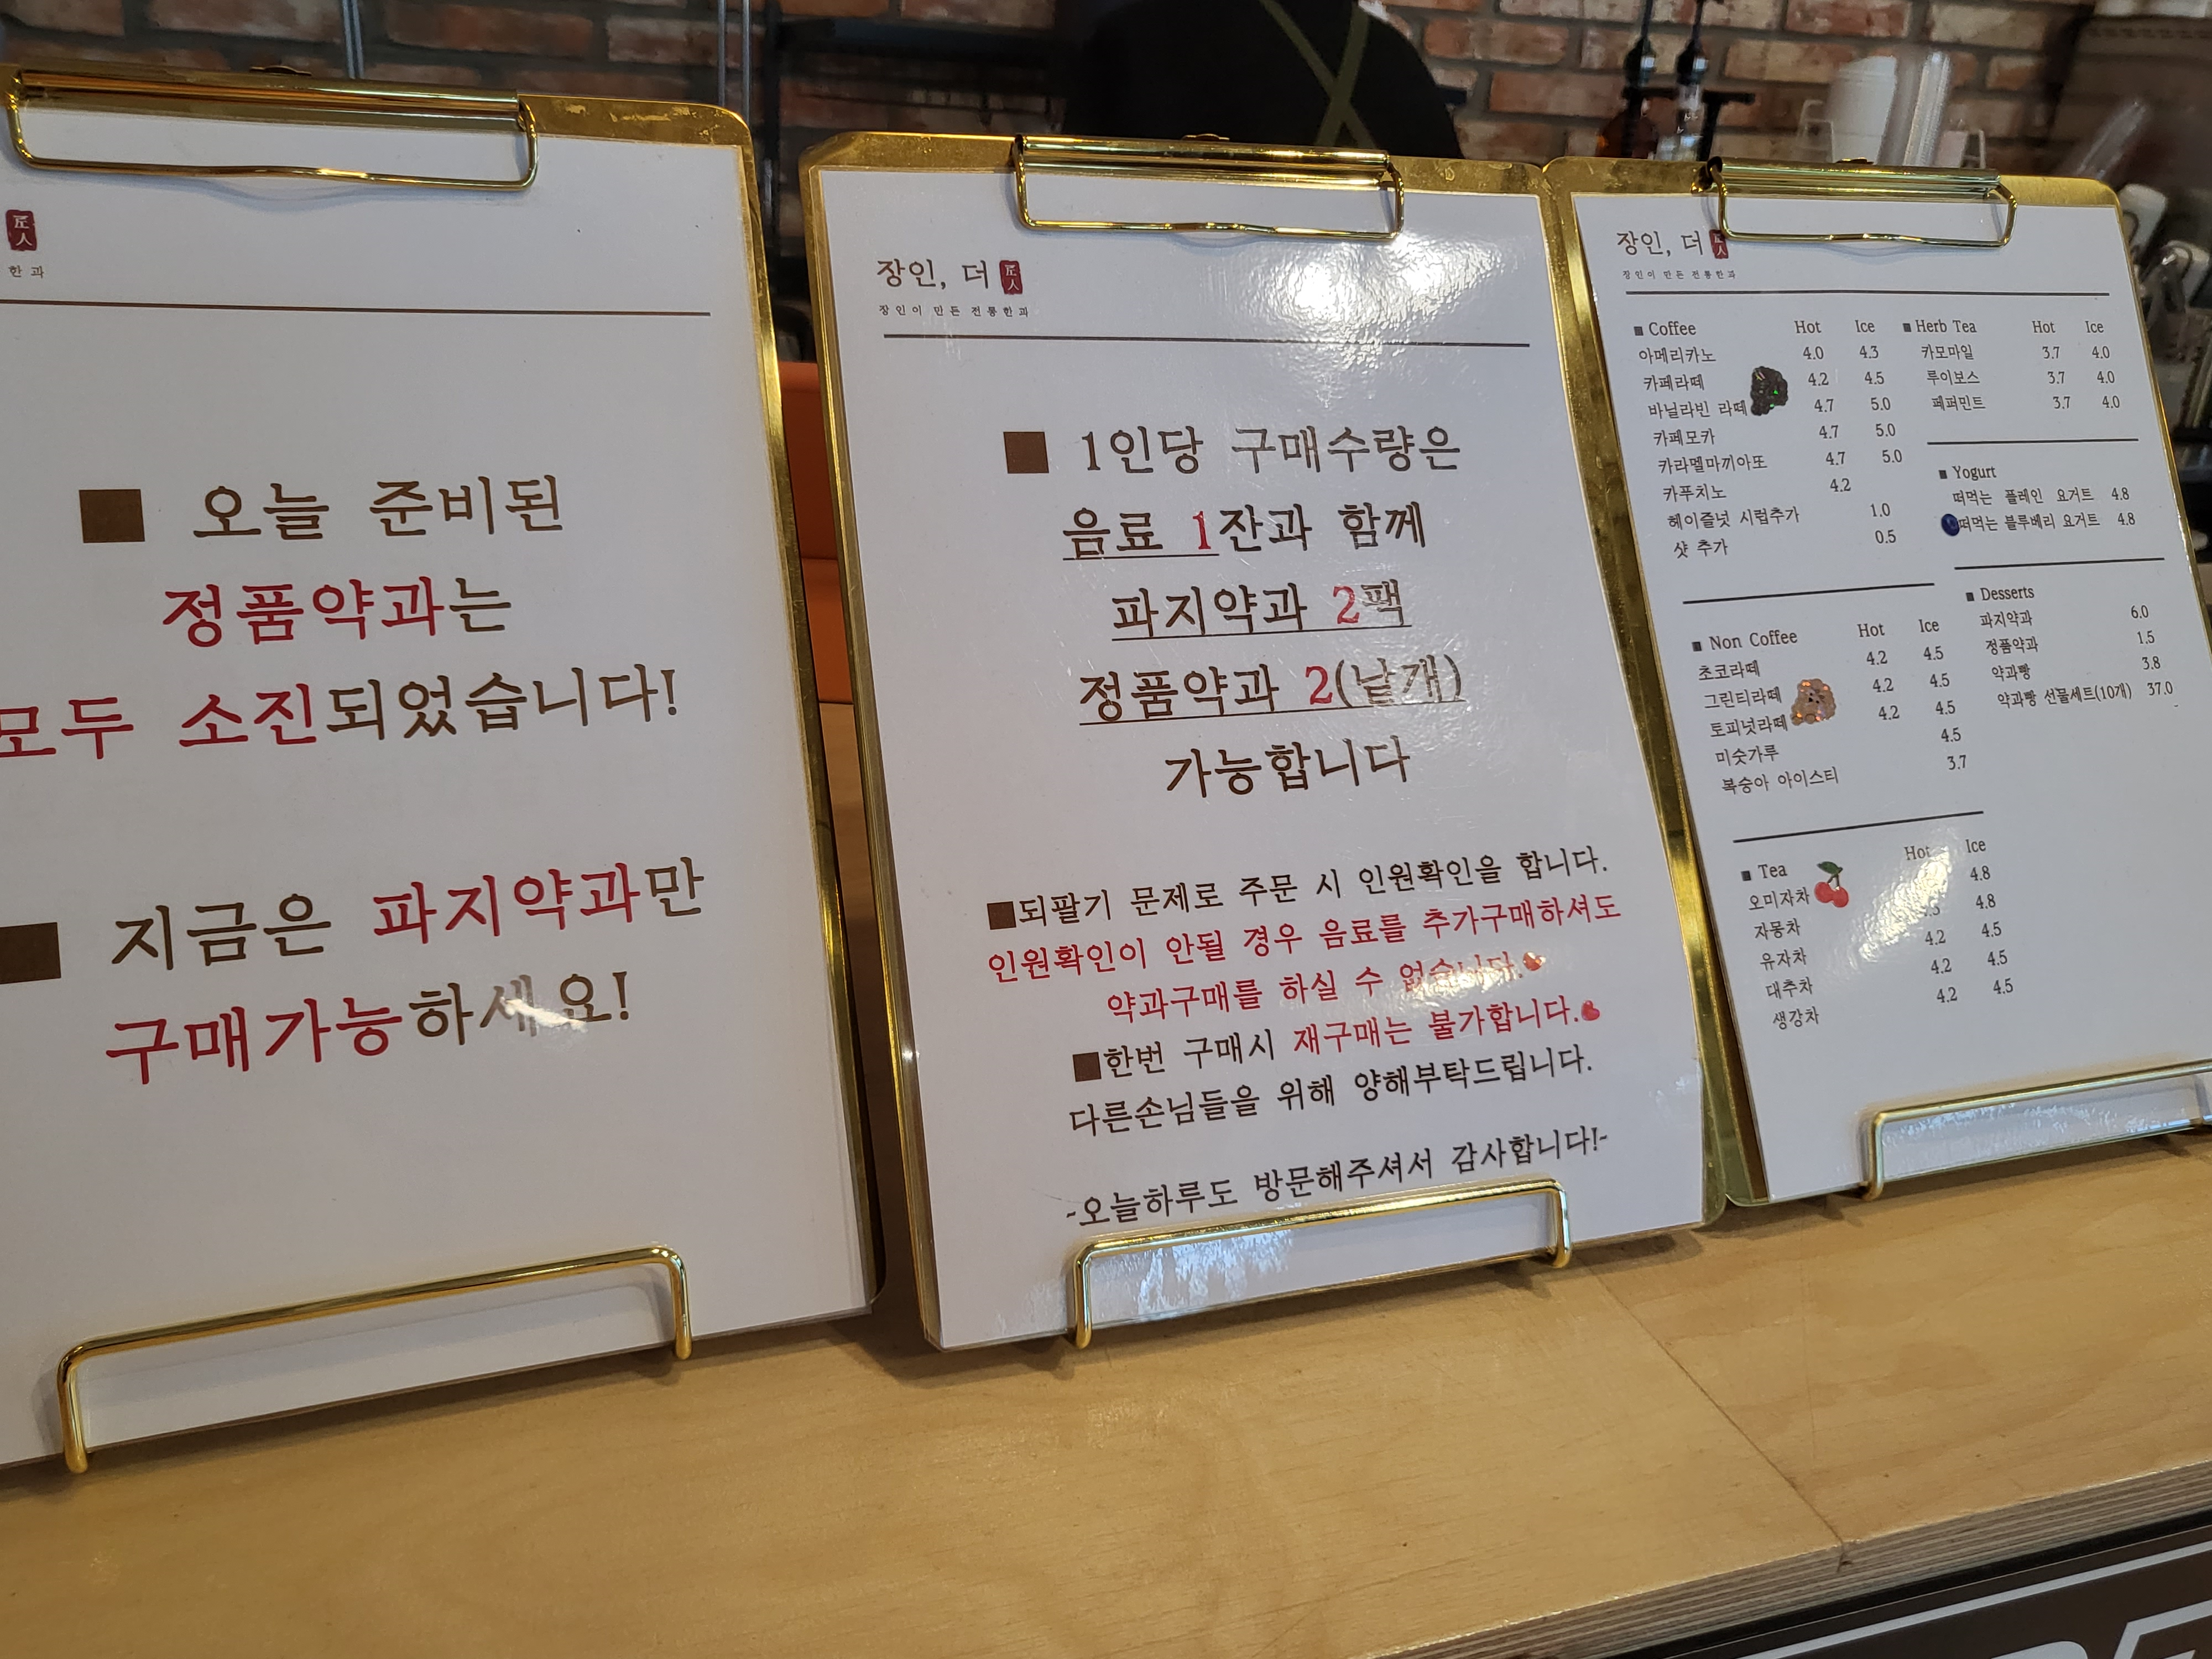 匠人
한과
■ 오늘 준비된
정품약과는
모두 소진되었습니다!
■ 지금은 파지약과만
구매가능하세요!
장인, 더 匠人
장인이 만든 전통한과
■ 1인당 구매수량은
음료 1잔과 함께
파지약과 2팩
정품약과 2(낱개)
가능합니다
■되팔기 문제로 주문 시 인원확인을 합니다.
인원확인이 안될 경우 음료를 추가구매하셔도
약과구매를 하실 수 없습니다.
■한번 구매시 재구매는 불가합니다.
다른손님들을 위해 양해부탁드립니다.
-오늘하루도 방문해주셔서 감사합니다!-
장인, 더 匠人
장인이 만든 전통한과
■ Coffee Hot Ice
아메리카노 4.0 4.3
카페라떼 4.2 4.5
바닐라빈 라떼 4.7 5.0
카페모카 4.7 5.0
카라멜마끼아또 4.7 5.0
카푸치노 4.2
헤이즐넛 시럽추가 1.0
샷 추가 0.5
■ Non Coffee Hot Ice
초코라떼 4.2 4.5
그린티라떼 4.2 4.5
토피넛라떼 4.2 4.5
미숫가루 4.5
복숭아 아이스티 3.7
■ Tea Hot Ice
오미자차 4.8
자몽차 4.8
유자차 4.2 4.5
대추차 4.2 4.5
생강차 4.2 4.5
■ Herb Tea Hot Ice
카모마일 3.7 4.0
루이보스 3.7 4.0
페퍼민트 3.7 4.0
■ Yogurt
떠먹는 플레인 요거트 4.8
떠먹는 블루베리 요거트 4.8
■ Desserts
파지약과 6.0
정품약과 1.5
약과빵 3.8
약과빵 선물세트(10개) 37.0